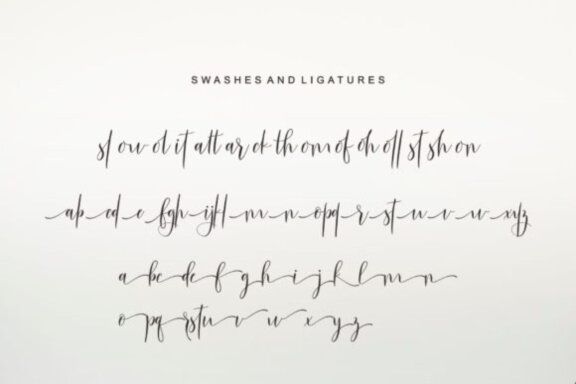 SWASHES AND LIGATURES
sl ow ol it att ar ck th om of oh oll st sh on
ab cd e fgh ijkl m n opq r st u v w xyz
a bc de f g h i j k l m n
o pq rstu v w x y z